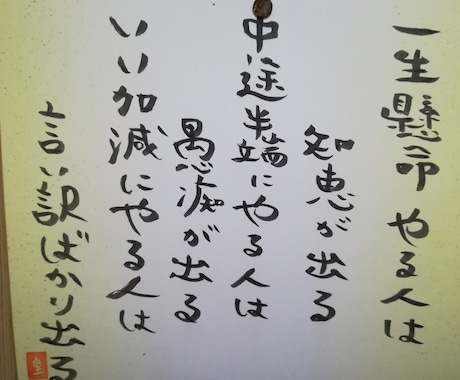 一生懸命 やる人は
知恵が出る
中途半端にやる人は
愚痴が出る
いい加減にやる人は
言い訳ばかり出る